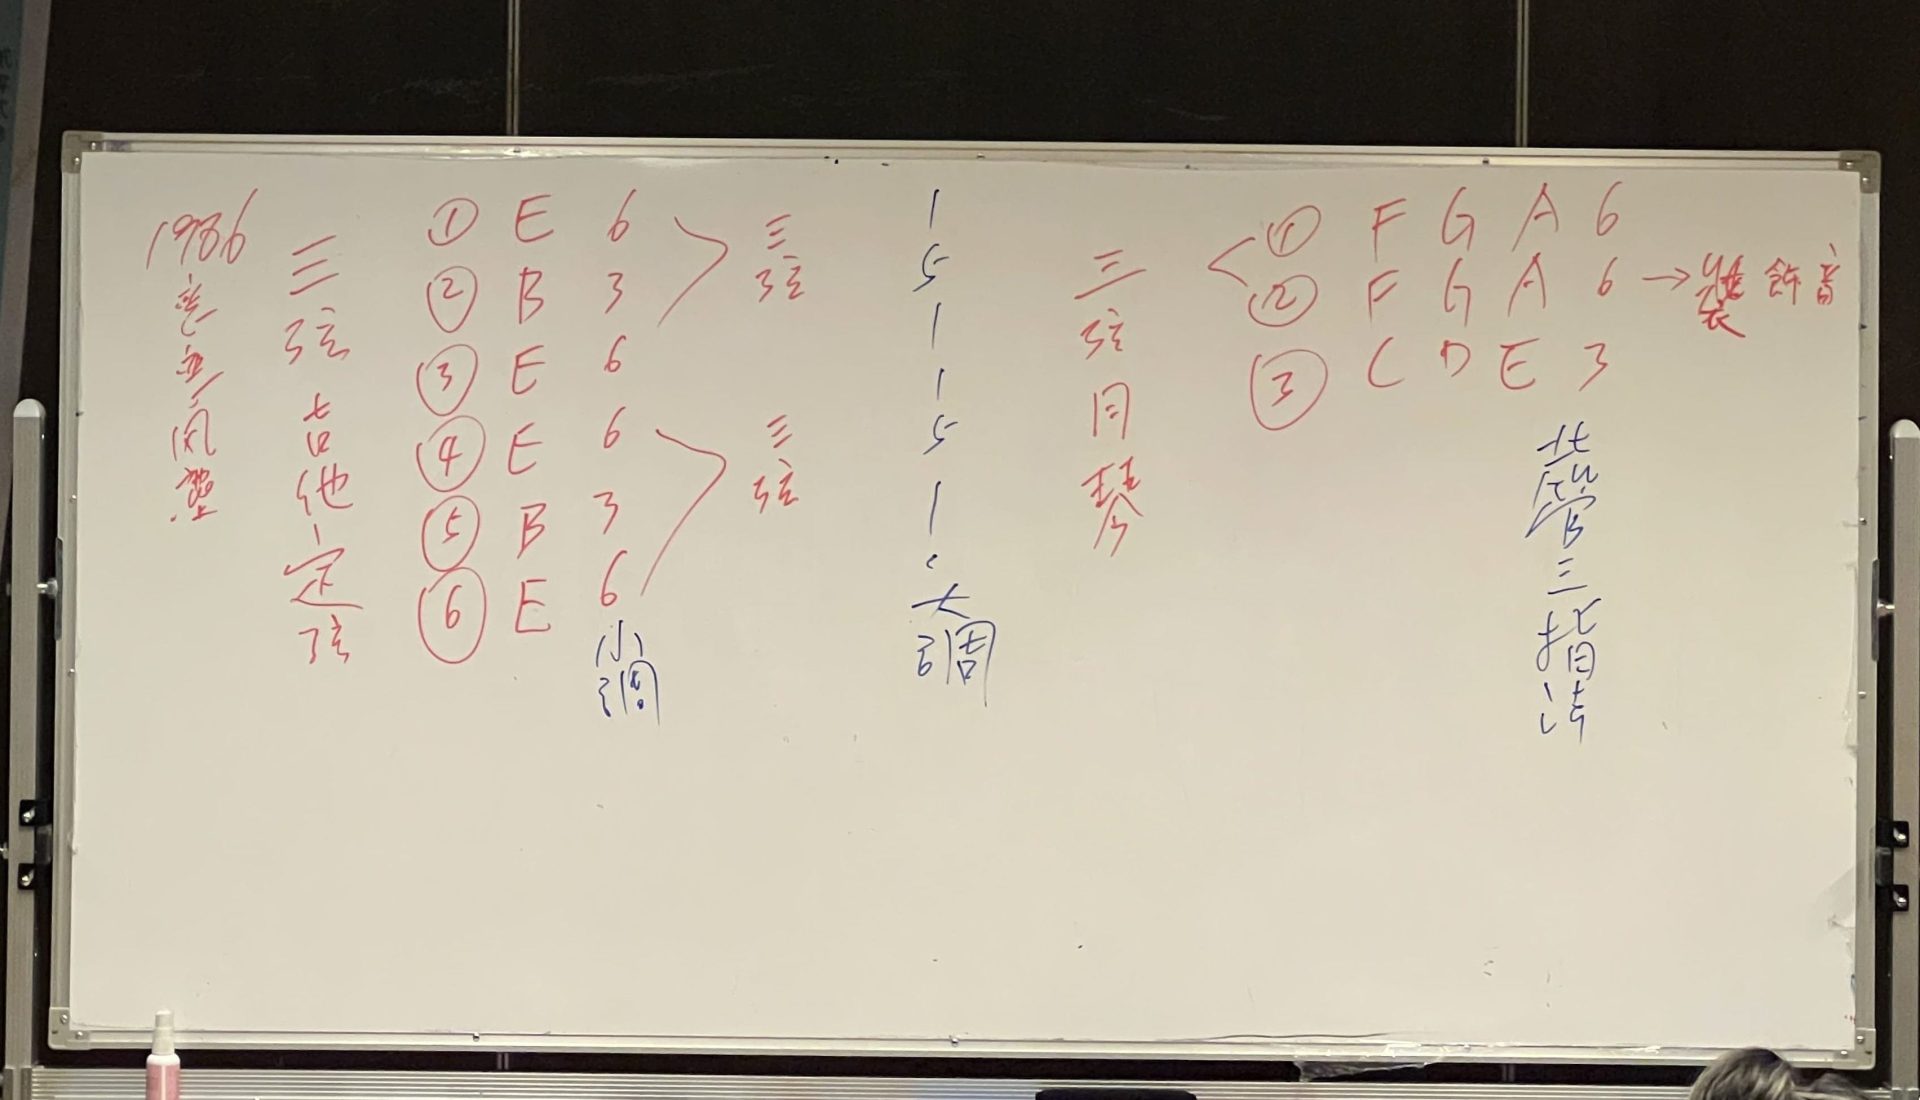 1986
意亞風盪
三弦吉他定弦
① E 6
② B 3
③ E 6
④ E 6
⑤ B 3
⑥ E 6
小調
三弦
三弦
1
5
1
1
5
1
大調
三弦月琴
① F G A 6
② F G A 6 → 裝飾音
③ C D E 3
北管三指法